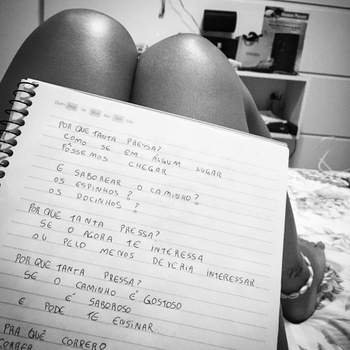 POR QUE TANTA PRESSA?
COMO SE EM ALGUM LUGAR
FÔSSEMOS CHEGAR
E SABOREAR O CAMINHO?
OS ESPINHOS?
OS DOCINHOS?
POR QUE TANTA PRESSA?
SE O AGORA TE INTERESSA
OU PELO MENOS DEVERIA INTERESSAR
POR QUE TANTA PRESSA?
SE O CAMINHO É GOSTOSO
É SABOROSO
E PODE TE ENSINAR
PRA QUÊ CORRER?